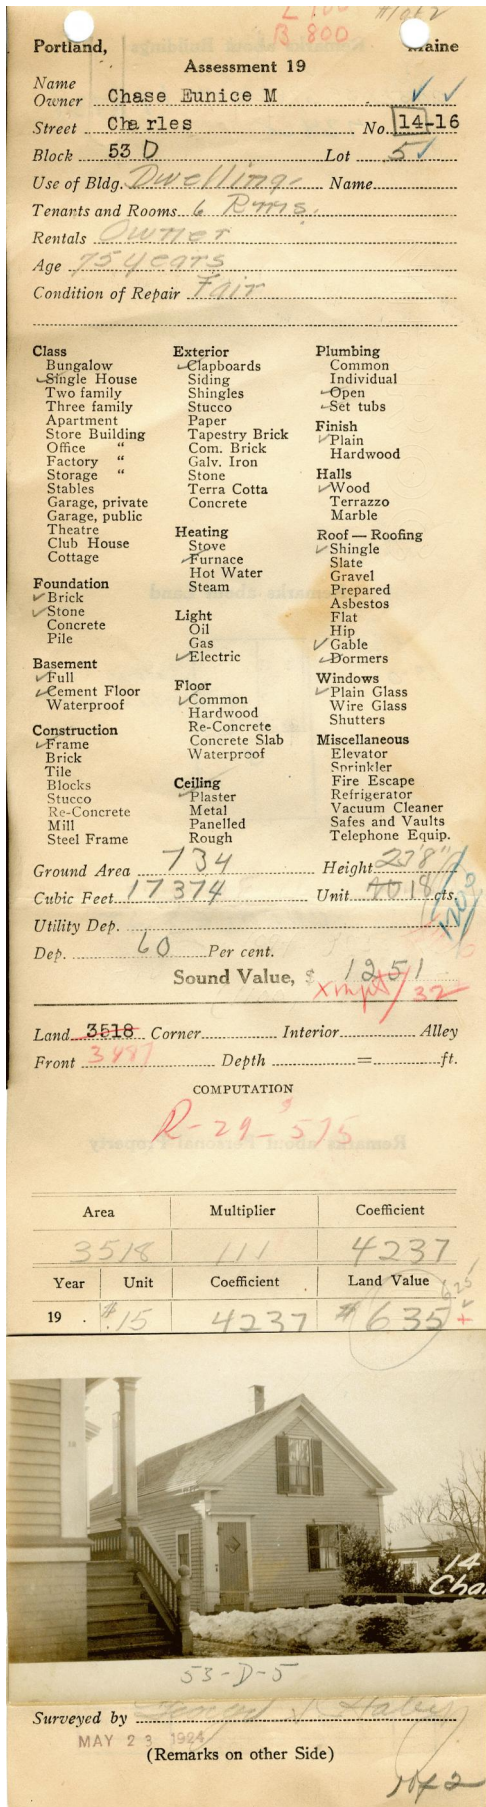 #1 of 2
L 700
B 800
Portland, Maine
Assessment 19
Name
Owner Chase Eunice M
Street Charles No. 14-16
Block 53 D Lot 5
Use of Bldg. Dwelling. Name
Tenants and Rooms 6 Rms.
Rentals Owner
Age 75 years
Condition of Repair Fair
Class
Bungalow
Single House
Two family
Three family
Apartment
Store Building
Office "
Factory "
Storage "
Stables
Garage, private
Garage, public
Theatre
Club House
Cottage
Foundation
Brick
Stone
Concrete
Pile
Basement
Full
Cement Floor
Waterproof
Construction
Frame
Brick
Tile
Blocks
Stucco
Re-Concrete
Mill
Steel Frame
Exterior
Clapboards
Siding
Shingles
Stucco
Paper
Tapestry Brick
Com. Brick
Galv. Iron
Stone
Terra Cotta
Concrete
Heating
Stove
Furnace
Hot Water
Steam
Light
Oil
Gas
Electric
Floor
Common
Hardwood
Re-Concrete
Concrete Slab
Waterproof
Ceiling
Plaster
Metal
Panelled
Rough
Plumbing
Common
Individual
Open
Set tubs
Finish
Plain
Hardwood
Halls
Wood
Terrazzo
Marble
Roof — Roofing
Shingle
Slate
Gravel
Prepared
Asbestos
Flat
Hip
Gable
Dormers
Windows
Plain Glass
Wire Glass
Shutters
Miscellaneous
Elevator
Sprinkler
Fire Escape
Refrigerator
Vacuum Cleaner
Safes and Vaults
Telephone Equip.
Ground Area 734 Height 23'8"
Cubic Feet 17374 Unit 18 cts.
Utility Dep.
Dep. 60 Per cent.
Sound Value, $ 1251
Land 3518 Corner Interior Alley
Front 3487 Depth = ft.
COMPUTATION
R-29-575
Area Multiplier Coefficient
3518 111 4237
Year Unit Coefficient Land Value
19 . $.15 4237 $635 +
625
14
Cha
53-D-5
Surveyed by
MAY 23 1924
(Remarks on other Side)
1 of 2